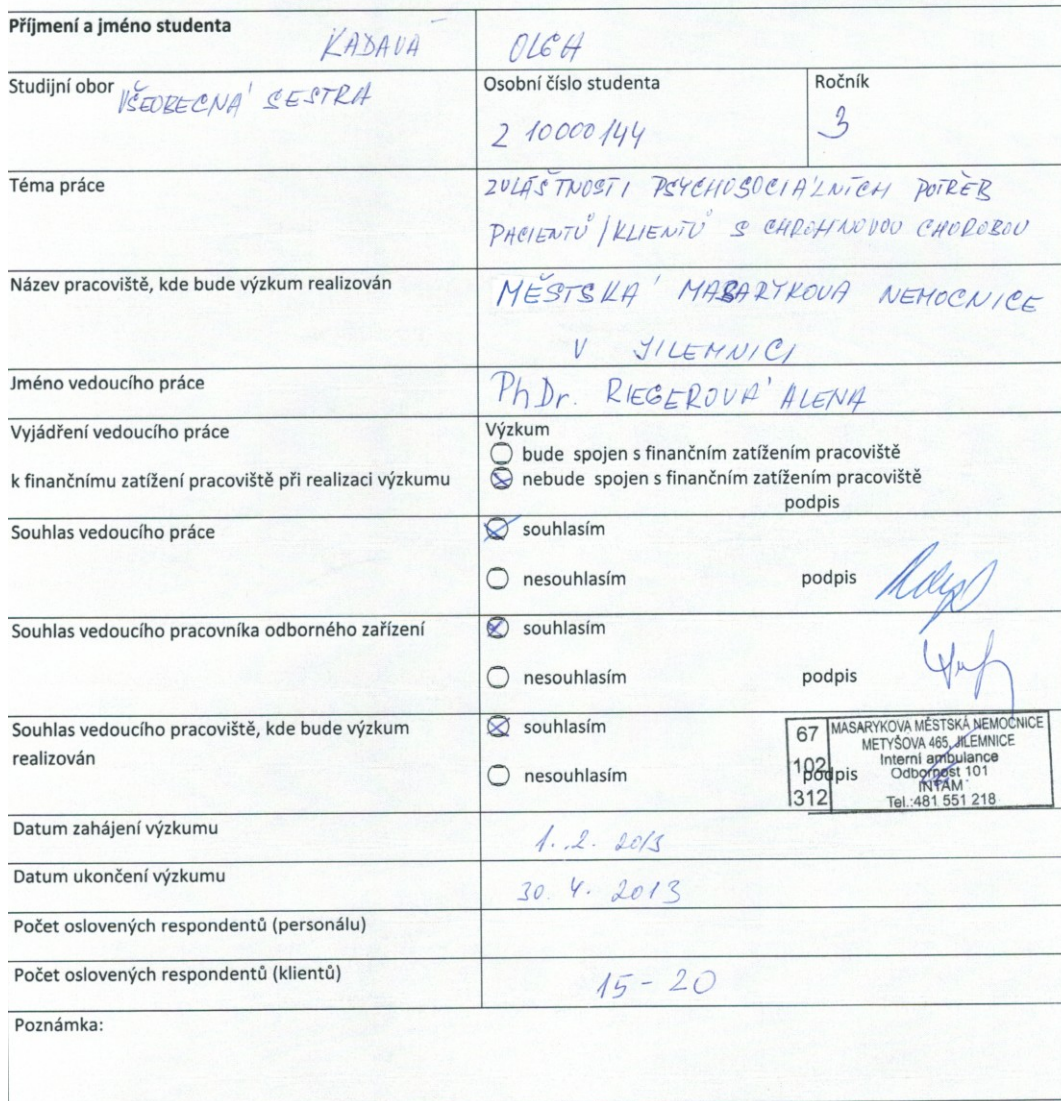 Příjmení a jméno studenta
KADAVÁ OLGA
Studijní obor VŠEOBECNÁ SESTRA
Osobní číslo studenta
2 10000144
Ročník
3
Téma práce
ZVLÁŠTNOSTI PSYCHOSOCIÁLNÍCH POTŘEB
PACIENTŮ/KLIENTŮ S CHROHNOVOU CHOROBOU
Název pracoviště, kde bude výzkum realizován
MĚSTSKÁ MASARYKOVA NEMOCNICE
V JILEMNICI
Jméno vedoucího práce
PhDr. RIEGEROVÁ ALENA
Vyjádření vedoucího práce
k finančnímu zatížení pracoviště při realizaci výzkumu
Výzkum
bude spojen s finančním zatížením pracoviště
nebude spojen s finančním zatížením pracoviště
podpis
Souhlas vedoucího práce
souhlasím
nesouhlasím podpis
Souhlas vedoucího pracovníka odborného zařízení
souhlasím
nesouhlasím podpis
Souhlas vedoucího pracoviště, kde bude výzkum
realizován
souhlasím
nesouhlasím podpis
67
102
312
MASARYKOVA MĚSTSKÁ NEMOCNICE
METYŠOVA 465, JILEMNICE
Interní ambulance
Odbornost 101
INTAM
Tel.:481 551 218
Datum zahájení výzkumu
1. 2. 2013
Datum ukončení výzkumu
30. 4. 2013
Počet oslovených respondentů (personálu)
Počet oslovených respondentů (klientů)
15 - 20
Poznámka: